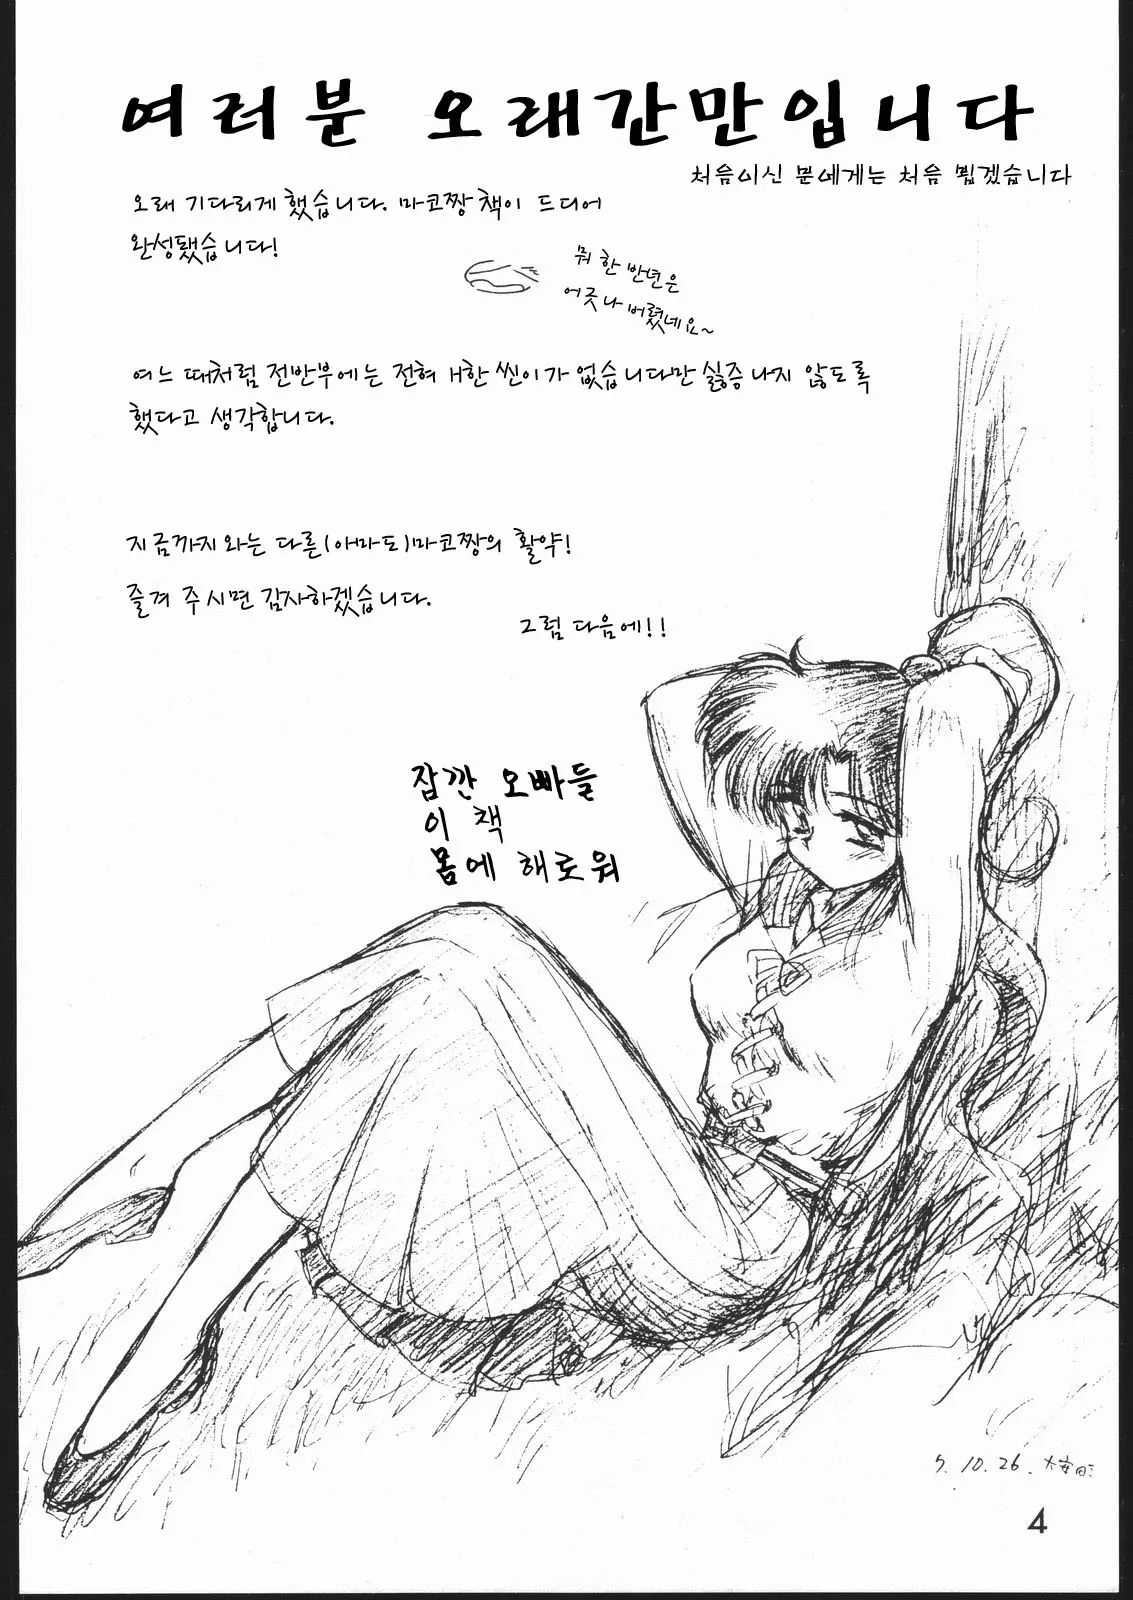 여러분 오래간만입니다
처음이신 분에게는 처음 뵙겠습니다
오래 기다리게 했습니다. 마코짱 책이 드디어
완성됐습니다!
뭐 한 반년은
어긋나 버렸네요~
여느 때처럼 전반부에는 전혀 H한 씬이가 없습니다만 싫증나지 않도록
했다고 생각합니다.
지금까지와는 다른(아마도)마코짱의 활약!
즐겨 주시면 감사하겠습니다.
그럼 다음에!!
잠깐 오빠들
이 책
몸에 해로워
5.10.26.
4